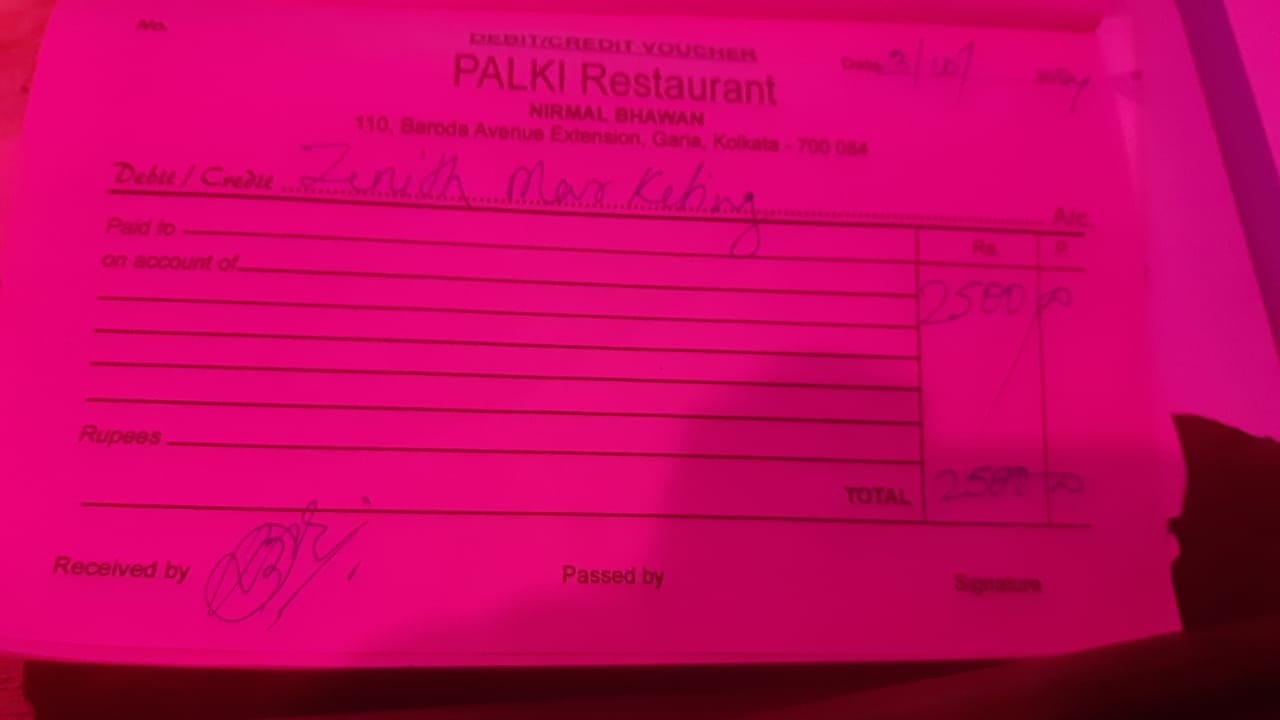 No.
DEBIT/CREDIT VOUCHER
PALKI Restaurant
Date 3/10/
NIRMAL BHAWAN
110, Baroda Avenue Extension, Garia, Kolkata - 700 084
Debit / Credit Zenith Marketing A/c.
Paid to
Rs. P.
on account of
2500 00
Rupees
TOTAL 2500 00
Received by
Passed by
Signature